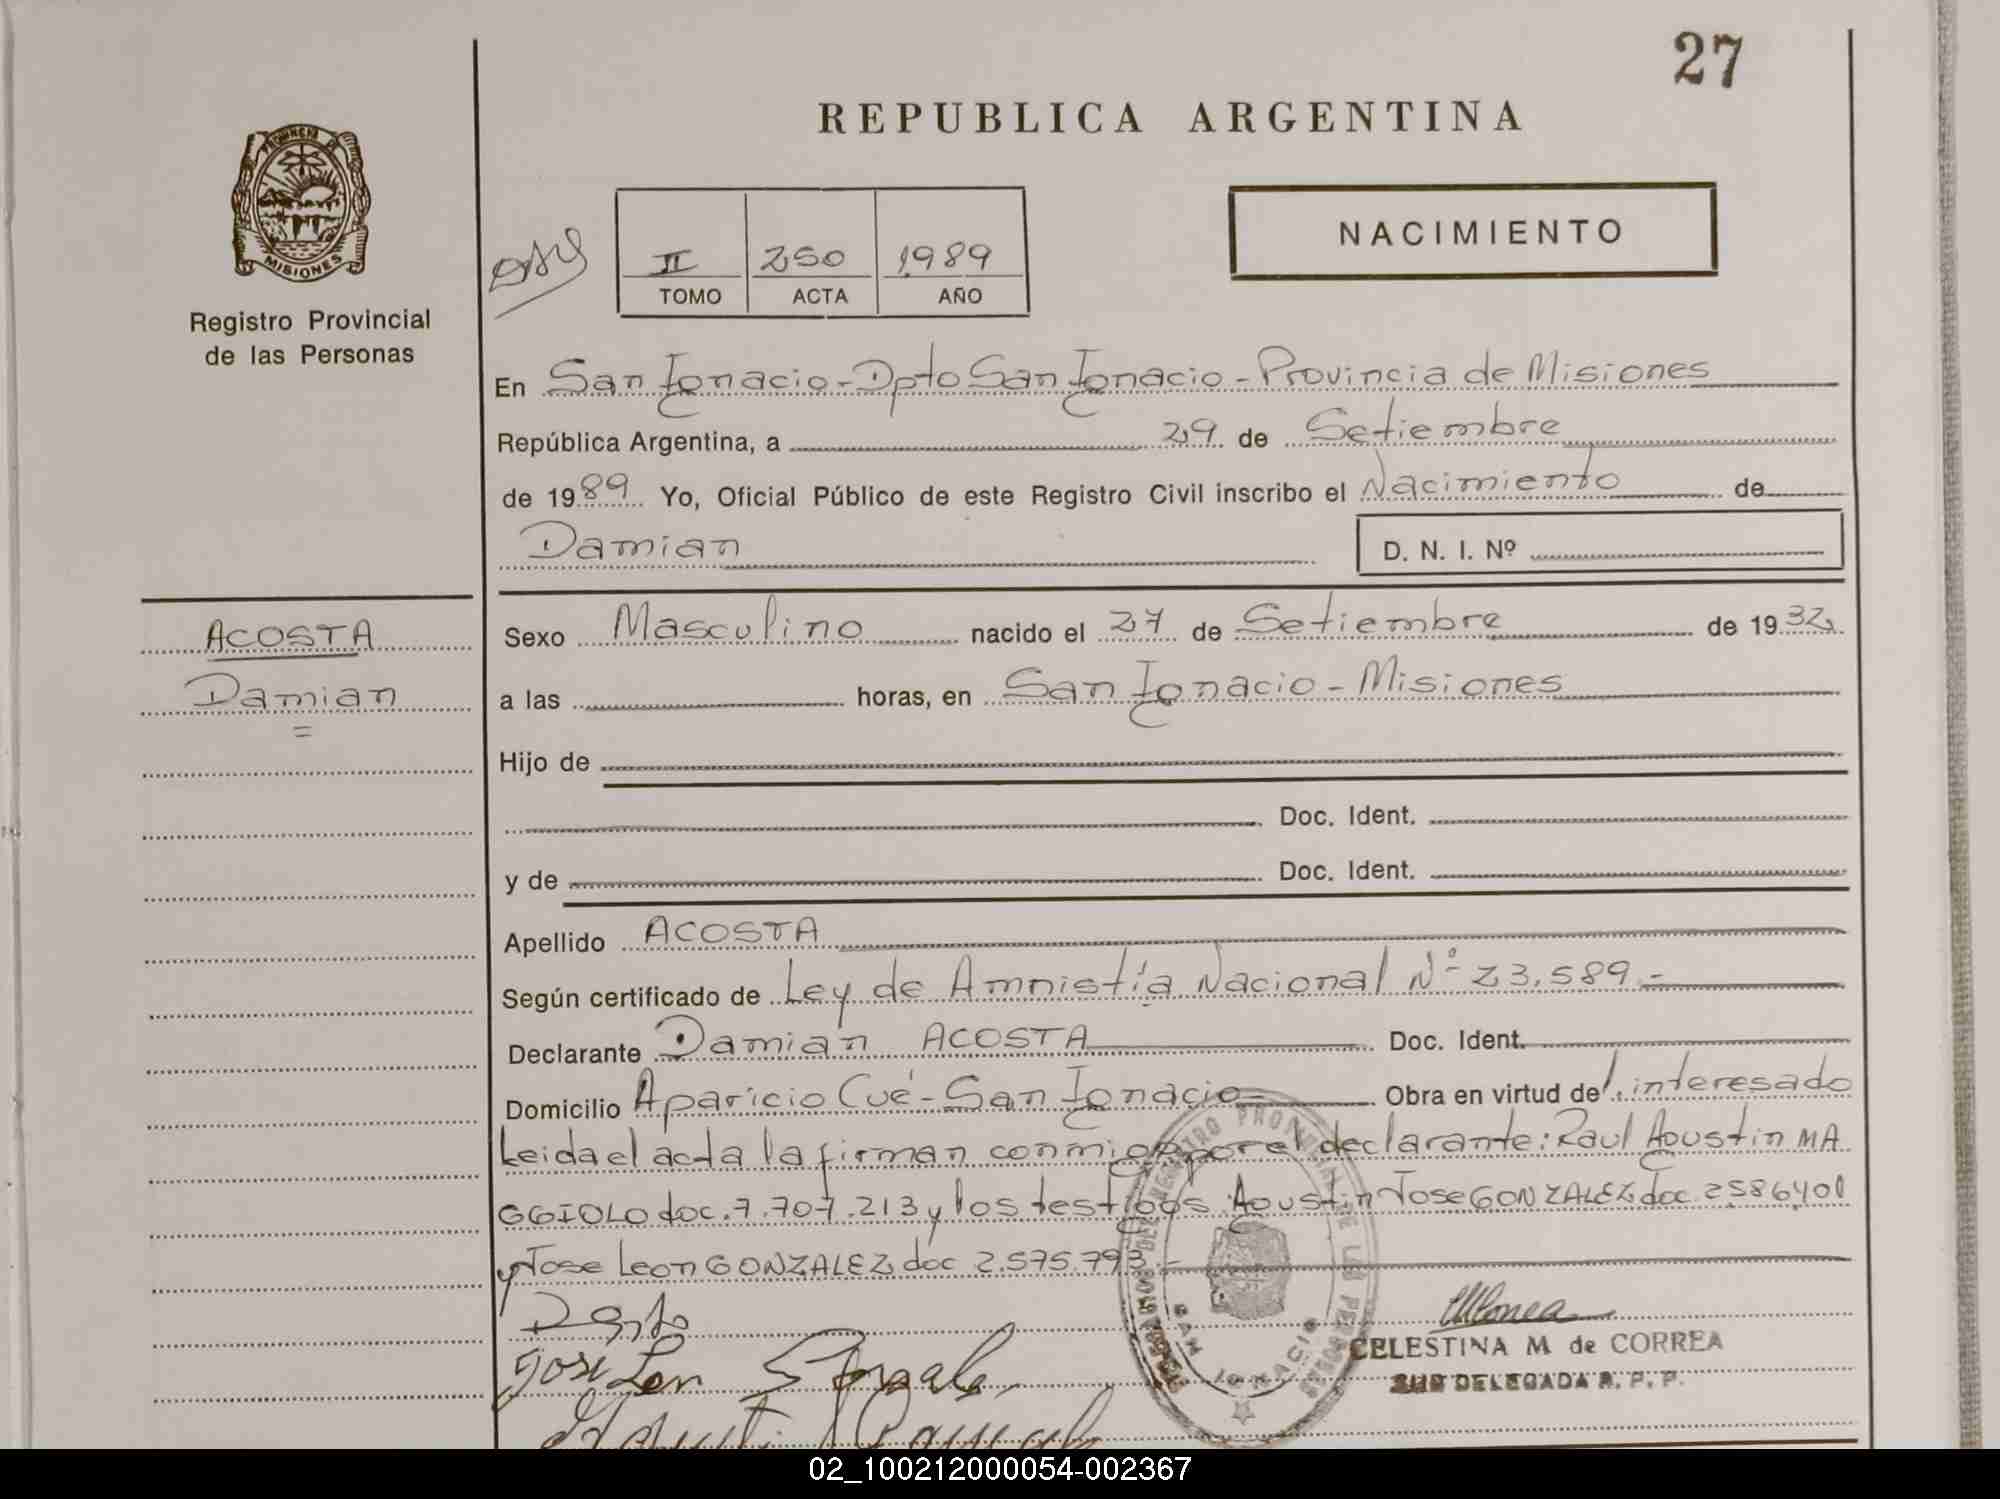 27
REPUBLICA ARGENTINA
PROVINCIA DE
MISIONES
Registro Provincial
de las Personas
II 250 1989
TOMO ACTA AÑO
NACIMIENTO
En San Ignacio - Dpto San Ignacio - Provincia de Misiones
República Argentina, a 29 de Setiembre
de 1989 Yo, Oficial Público de este Registro Civil inscribo el Nacimiento de
Damian D. N. I. Nº
ACOSTA
Damian
Sexo Masculino nacido el 27 de Setiembre de 1932
a las horas, en San Ignacio - Misiones
Hijo de
Doc. Ident.
y de Doc. Ident.
Apellido ACOSTA
Según certificado de Ley de Amnistía Nacional Nº 23.589.-
Declarante Damian ACOSTA Doc. Ident.
Domicilio Aparicio Cué - San Ignacio Obra en virtud de l. interesado
Leida el acta la firman conmigo por el declarante: Raul Agustin MA
GGIOLO doc. 7.707.213 y los testigos: Agustin Jose GONZALEZ doc. 2586401
y Jose Leon GONZALEZ doc 2.575.793.-
CELESTINA M de CORREA
SUB DELEGADA R. P. P.
SAN IGNACIO
02_100212000054-002367